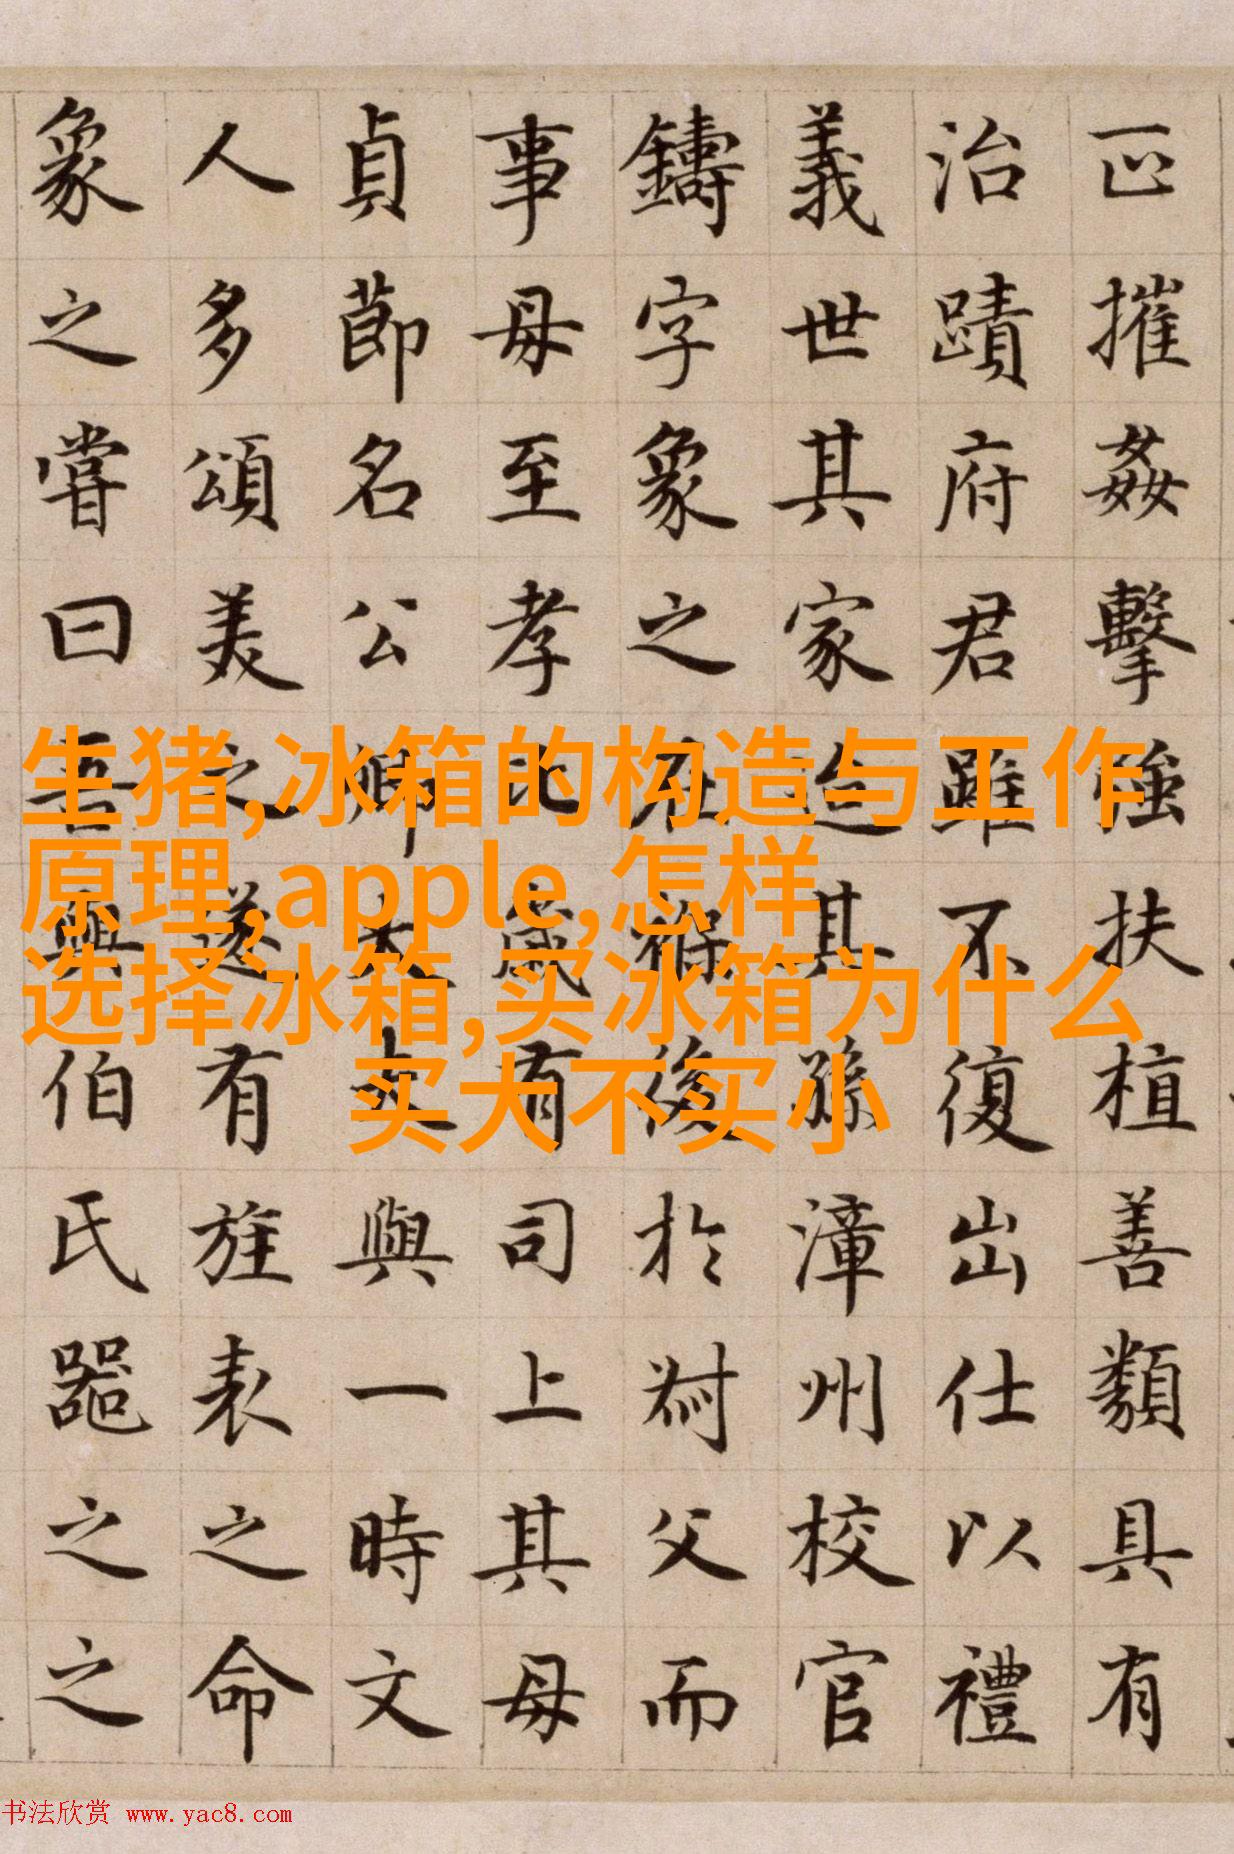 摧姦擊強扶植善類具有
治蹟府君雖不復出仕以禮
義世其家迨其孫漳州校官
鑄字象之在褓後於父而
事母至孝比歲有司上其母
貞節名公卿大夫與一時文
人多頌美之遂有旌表之命
象之嘗曰吾與伯氏噐之之
生猪,冰箱的构造与工作
原理,apple,怎样
选择冰箱,买冰箱为什么
买大不买小
书法欣赏 www.yac8.com